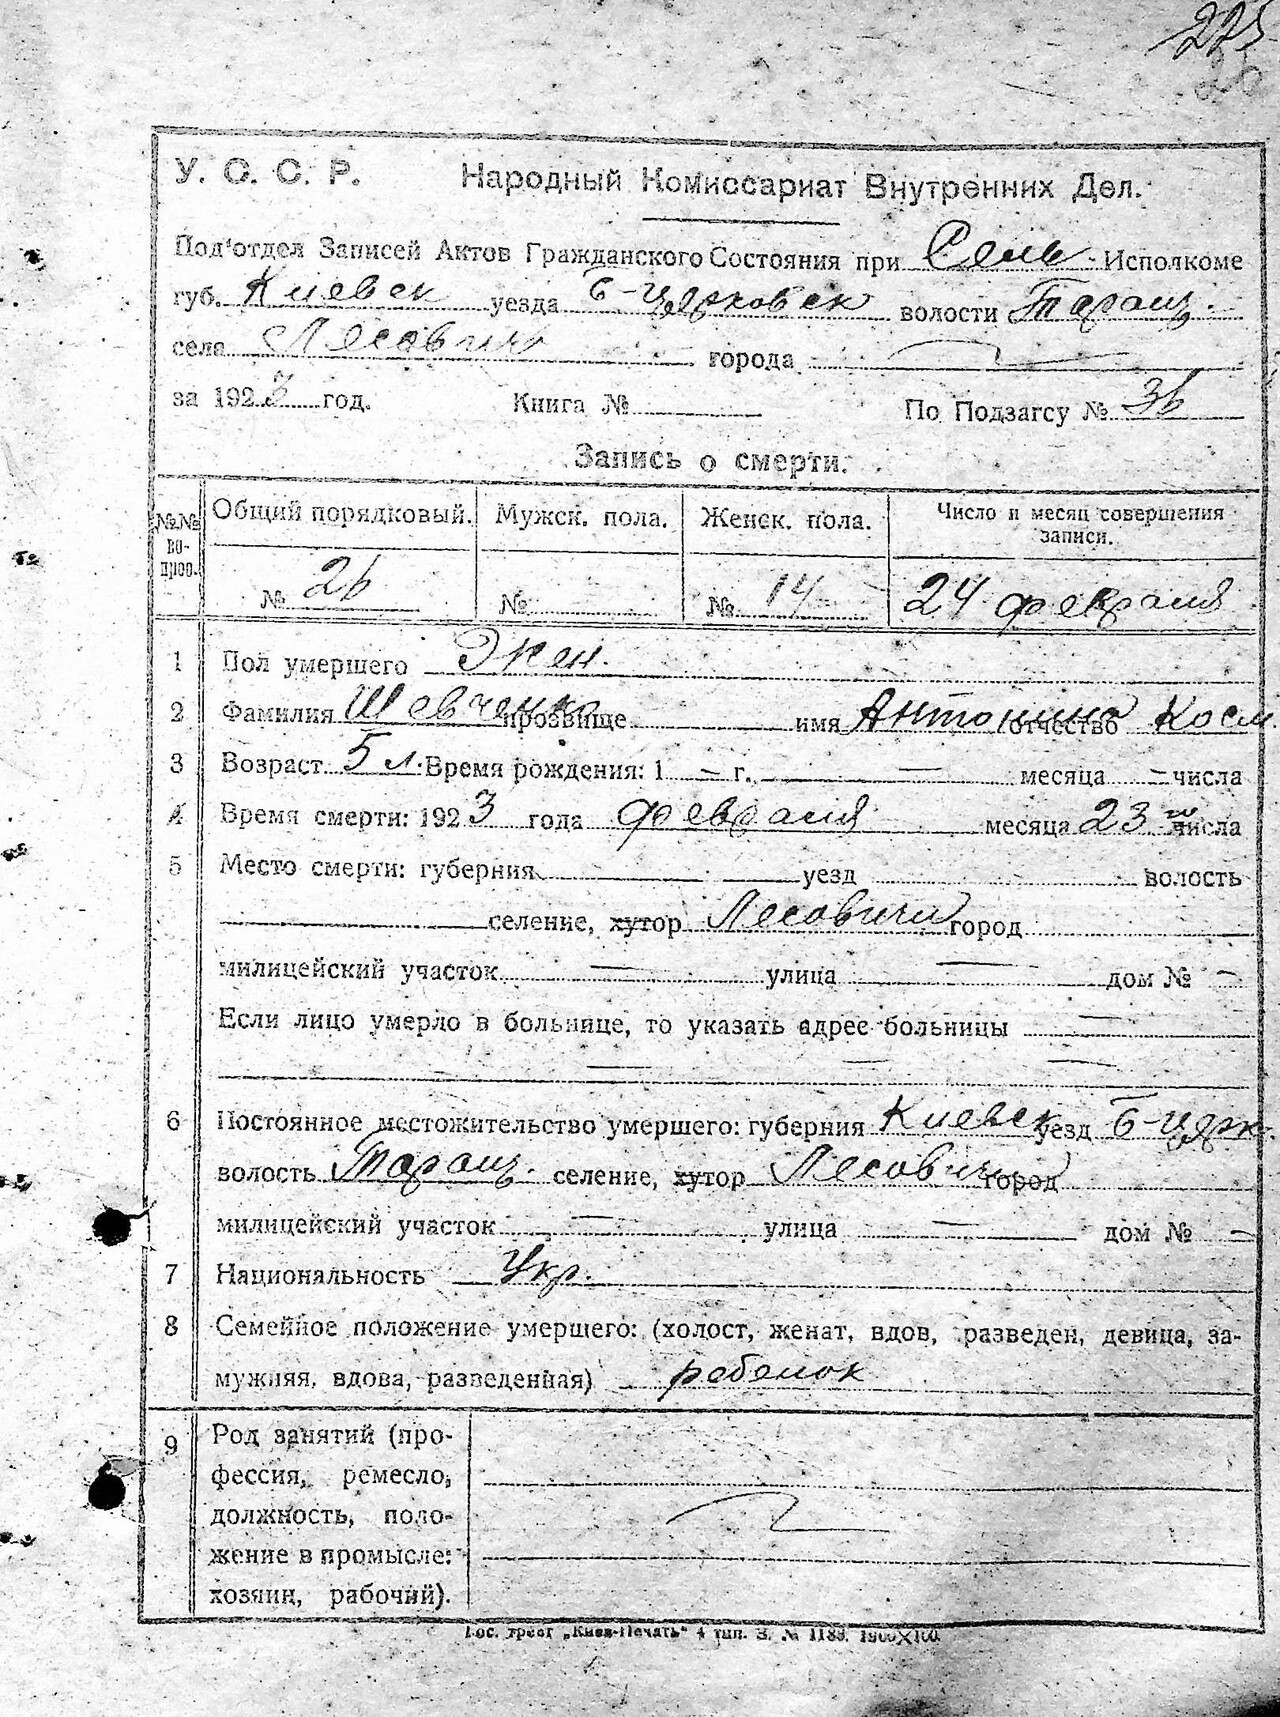 225
У. С. С. Р. Народный Комиссариат Внутренних Дел.
Под'отдел Записей Актов Гражданского Состояния при Сель. Исполкоме
губ. Киевск уезда Б-Церковск волости Таращ.
села Лесовичи города
за 1923 год. Книга № По Подзагсу № 36
Запись о смерти.
№№ вопрос. Общий порядковый. Мужск. пола. Женск. пола. Число и месяц совершения записи.
№ 26 № № 14 24 февраля
1 Пол умершего Жен.
2 Фамилия Шевченко прозвище имя Антонина отчество Косм
3 Возраст 5 л. Время рождения: 1 — г. — месяца — числа
4 Время смерти: 1923 года февраля месяца 23 го числа
5 Место смерти: губерния уезд волость
селение, хутор Лесовичи город
милицейский участок — улица — дом № —
Если лицо умерло в больнице, то указать адрес больницы —
— —
6 Постоянное местожительство умершего: губерния Киевск уезд Б-Церк.
волость Таращ. селение, хутор Лесовичи город
милицейский участок — улица — дом № —
7 Национальность Укр.
8 Семейное положение умершего: (холост, женат, вдов, разведен, девица, за-
мужняя, вдова, разведенная) ребенок
9 Род занятий (про-
фессия, ремесло,
должность, поло-
жение в промысле:
хозяин, рабочий).
Гос. трест „Киев-Печать" 4 тип. З. № 1183. 1900×100.